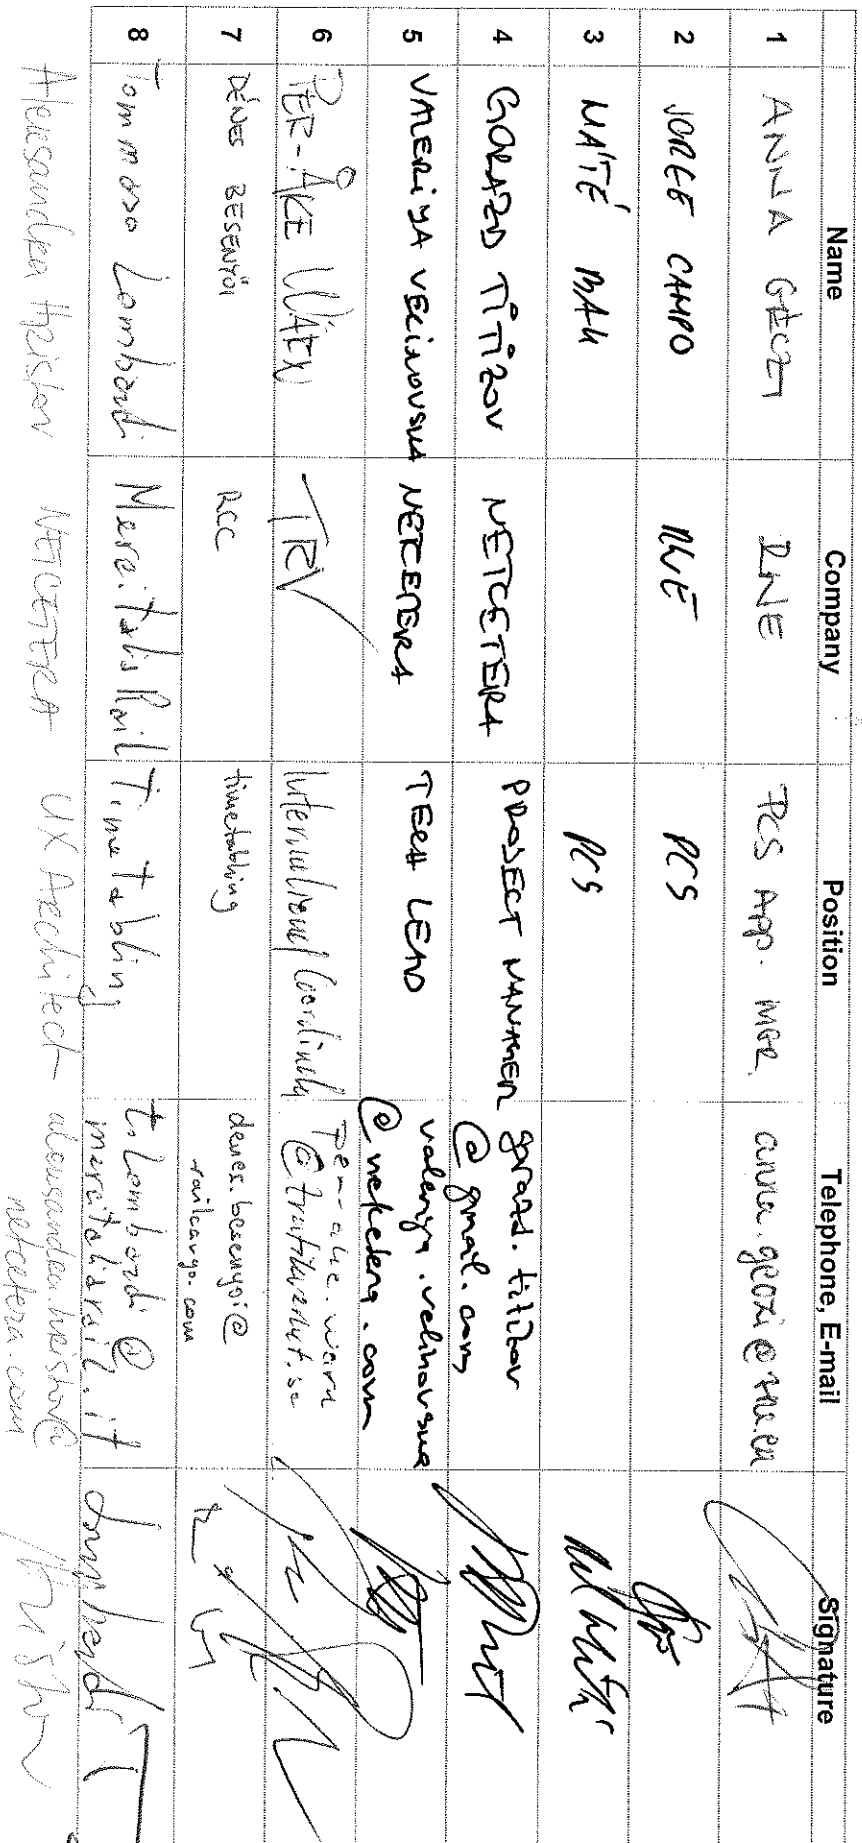 Name Company Position Telephone, E-mail Signature
1 ANNA GÉCZI RNE PCS App. MGR. anna.geczi@rne.eu
2 JORGE CAMPO RNE PCS
3 MÁTÉ BAK PCS
4 GORAZD TITIZOV NETCETERA PROJECT MANAGER gorazd.titizov
@gmail.com
5 VALERIJA VELINOVSKA NETCETERA TECH LEAD valerija.velinovska
@netcetera.com
6 PER-ÅKE WÄRN TRV International Coordinator per-ake.warn
@trafikverket.se
7 DÉNES BESENYŐI RCC timetabling denes.besenyoi@
railcargo.com
8 Tommaso Lombardi Mercitalia Rail Timetabling t.lombardi@
mercitaliarail.it
Aleksandra Hristov NETCETERA UX Architect aleksandra.hristov@
netcetera.com